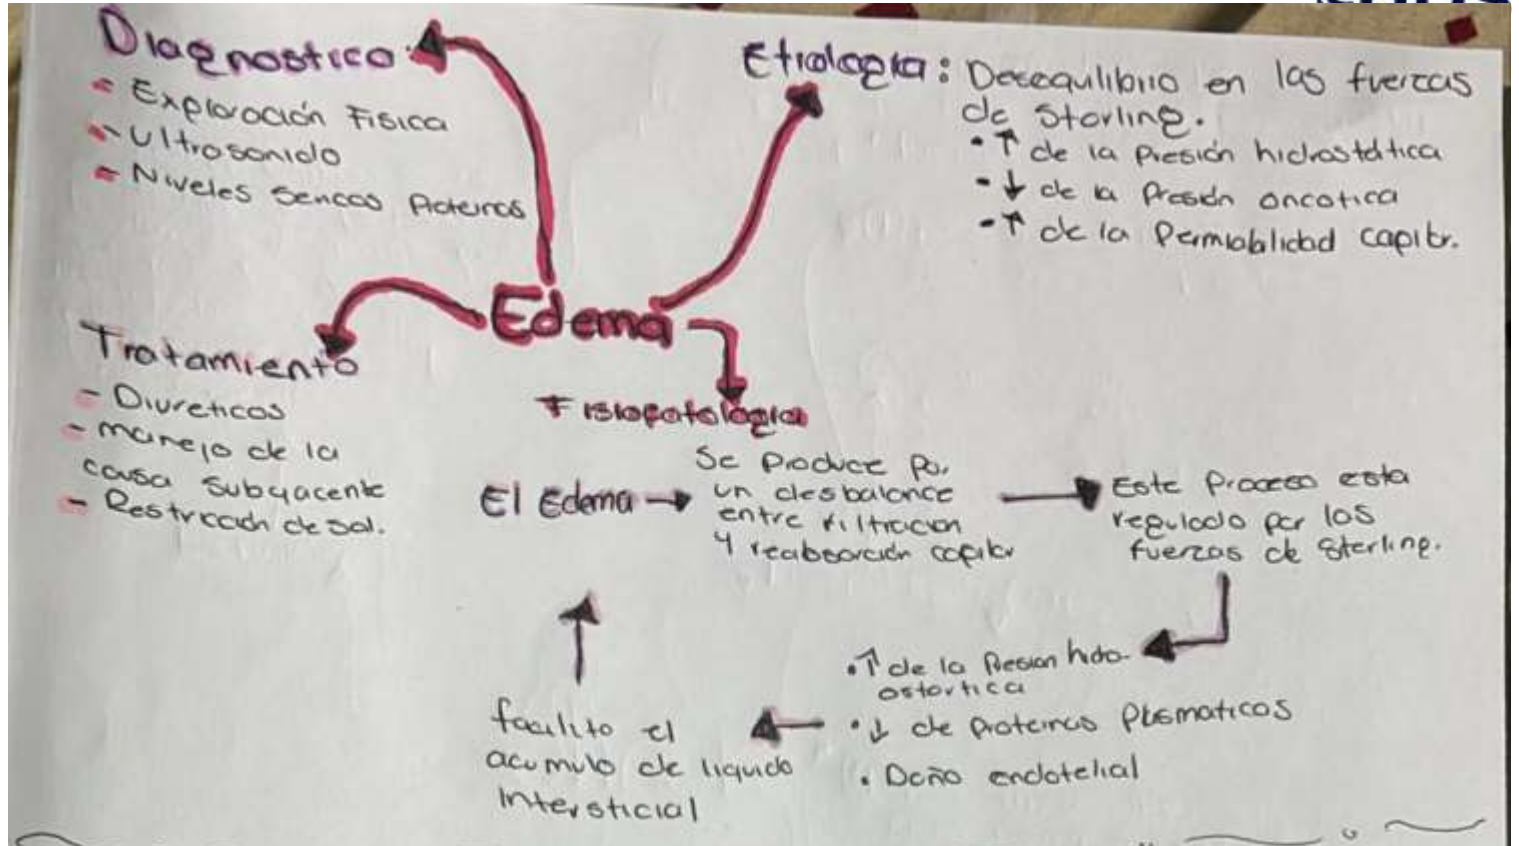 Diagnostico
- Exploración Fisica
- Ultrosonido
- Niveles Sericos Proteinas
Etiologia: Desequilibrio en las fuerzas
de Starling.
- ↑ de la Presión hidrostática
- ↓ de la Presión oncotica
- ↑ de la Permiabilidad capilar.
Edema
Tratamiento
- Diureticos
- manejo de la
causa subyacente
- Restricción de sal.
Fisiopatologia
El Edema →
Se Produce por
un desbalance
entre filtracion
y reabsorción capilar
Este Proceso esta
regulado por las
fuerzas de Sterling.
• ↑ de la Presion hido-
ostortica
• ↓ de Proteinas Plasmaticas
• Daño endotelial
facilito el
acumulo de liquido
Intersticial